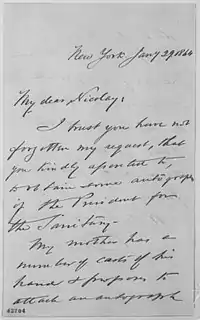 New York Jany 29 1864
My dear Nicolay:
I trust you have not
forgotten my request, that
you kindly assented to,
to obtain some autographs
of the President for
the Sanitary.
My mother has a
number of casts of his
hand & proposes to
attach an autograph
43764